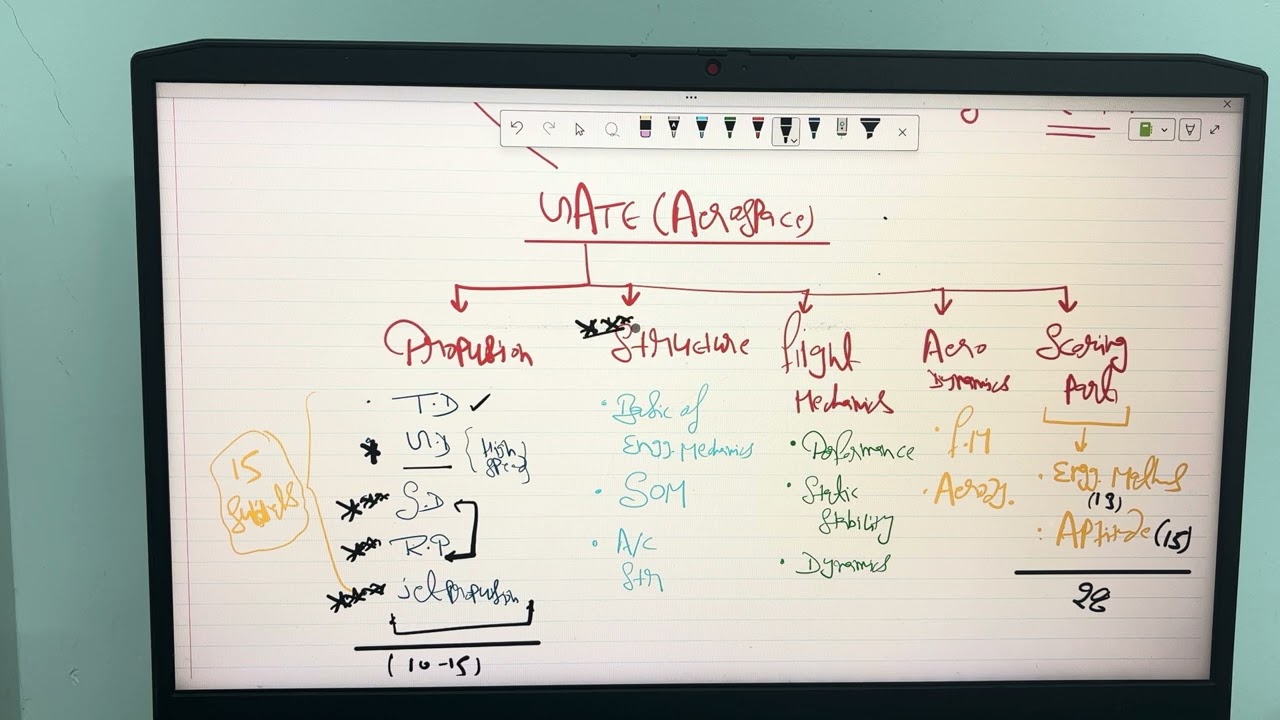 GATE (Aerospace)
Propulsion
*** Structure
flight Mechanics
Aero Dynamics
Scoring Part
15 Subjects
• T.D ✓
* G.D { High Speed }
*** S.D
*** R.P
*** jet propulsion
(10-15)
• Basic of
Engg. Mechanics
• SOM
• A/C
Str
• Performance
• Static
Stability
• Dynamics
• F.M
• Aerody.
• Engg. Maths
(13)
• Aptitude (15)
28